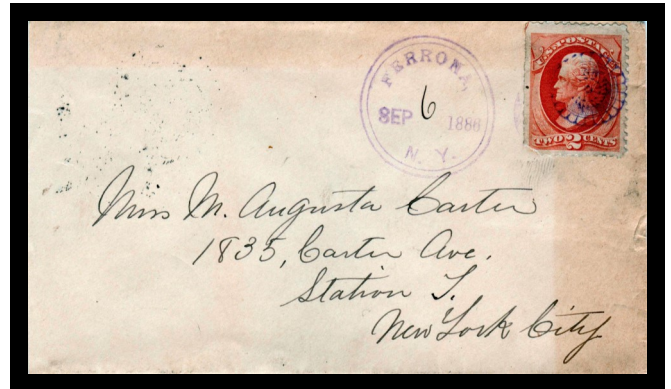 FERRONA,
SEP 6 1886
N. Y.
U.S. POSTAGE
TWO 2 CENTS
Miss M. Augusta Carter
1835, Carter Ave.
Station T.
New York City